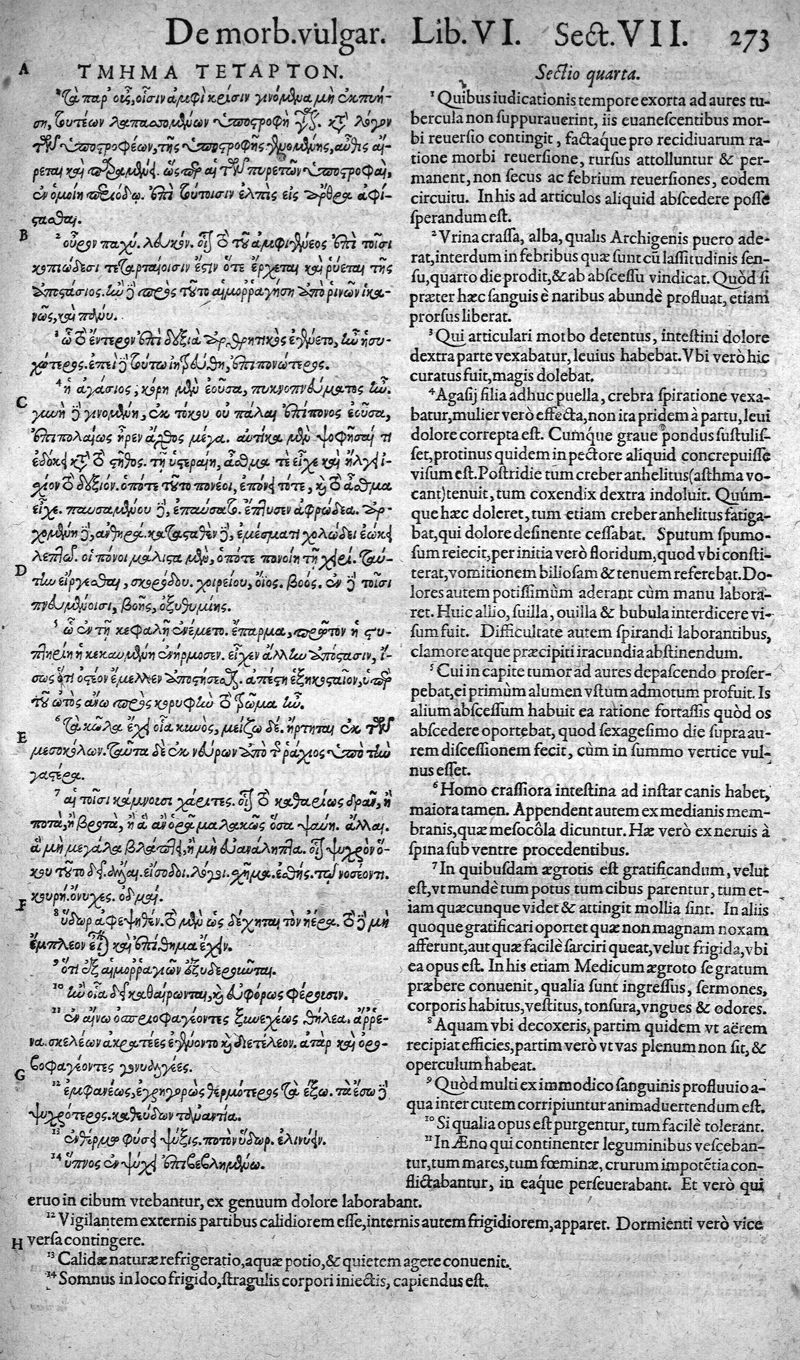 De morb.vulgar. Lib.VI. Sect.VII. 273
A ΤΜΗΜΑ ΤΕΤΑΡΤΟΝ.
¹Τὰ παρ' οὖς, οἷσιν ἀμφὶ κρίσιν γινόμενα μὴ ἐκπυή-
ση, τουτέων λαπασσομένων ὑποστροφὴ γίνεται. κατὰ λόγον
τῶν ὑποστροφέων, τῆς ὑποστροφῆς γενομένης, αὖθις αἴ-
ρεται καὶ παραμένει. ὥσπερ αἱ τῶν πυρετῶν ὑποστροφαὶ,
ἐν ὁμοίῃ περιόδῳ. ἐπὶ τούτοισιν ἐλπὶς εἰς ἄρθρα ἀφί-
στασθαι.
B ²οὖρον παχὺ, λευκὸν, οἷον τὸ τοῦ ἀμφιγένεος ἐπὶ τοῖσι
κοπιώδεσι τεταρταίοισιν ἔστιν ὅτε ἔρχεται καὶ ῥύεται τῆς
ἀποστάσιος. ἢν δὲ πρὸς τοῦτο αἱμορραγήσῃ ἀπὸ ῥινῶν ἱκα-
νῶς, καὶ πάνυ.
³ᾧ τὸ ἔντερον ἐπὶ δεξιὰ ἀρθριτικὸς ἐγένετο, ἦν ἡσυ-
χώτερος. ἐπεὶ δὲ τοῦτο ἰήθη, ἐπιπονώτερος.
⁴ἡ ἀγάσιος, κόρη μὲν ἐοῦσα, πυκνοπνεύματος ἦν.
C γυνὴ δὲ γενομένη, ἐκ τόκου οὐ πάλαι ἐπίπονος ἐοῦσα,
ἐπιπολαίως ἦρεν ἄχθος μέγα. αὐτίκα μὲν ψοφῆσαί τι
ἐδόκει κατὰ τὸ στῆθος. τῇ ὑστεραίῃ, ἆσθμά τε εἶχε καὶ ἤλγει ἰ-
σχίον τὸ δεξιόν. ὁπότε τοῦτο πονέοι, ἐπόνει τότε, καὶ τὸ ἆσθμα
εἶχε. παυσαμένου δὲ, ἐπαύσατο. ἔπτυσεν ἀφρώδεα. ἀρ-
χομένη δὲ, ἀνθηρά. καταστάθεν δὲ, ἐμέσματι χολώδει ἐῴκει
λεπτῷ. οἱ πόνοι μάλιστα μὲν, ὁπότε πονοίη τῇ χειρί. ταύ-
D την εἴργεσθαι, σκορόδου. χοιρείου, ὄϊος. βοός. ἐν δὲ τοῖσι
πνευμένοισι, βοῆς, ὀξυθυμίης.
⁵ᾧ ἐν τῇ κεφαλῇ ἐνέμετο. ἔπαρμα, πρῶτον ἡ στυ-
πτηρίη ἡ κεκαυμένη ἐνήρμοσεν. εἶχεν ἄλλην ἀπόστασιν, ἴ-
σως ὅτι ὀστέον ἔμελλεν ἀποστήσεσθαι. ἀπέστη ἑξηκοσταῖον, ὑπὲρ
τοῦ ὠτὸς ἄνω πρὸς κορυφὴν τὸ τρῶμα ἦν.
E ⁶τὰ κῶλα ἔχει οἷα κυνὸς, μείζω δέ. ἤρτηται ἐκ τῶν
μεσοκώλων. ταῦτα δὲ ἐκ νεύρων ἀπὸ τῆς ῥάχιος ὑπὸ τὴν
γαστέρα.
⁷αἱ τοῖσι κάμνουσι χάριτες. οἷον τὸ καθαρίως δρᾶν, ἢ
ποτὰ, ἢ βρωτὰ, ἢ ἃ ἂν ὁρᾷ μαλακῶς ὅσα ψαύει. ἄλλαι.
ἃ μὴ μεγάλα βλάπτει, ἢ μὴ εὐανάληπτα. οἷον ψυχρὸν ὅ-
κου τοῦτο δεῖ. εἴσοδοι. λόγοι. σχῆμα. ἐσθής. τῷ νοσέοντι.
F κουρή. ὄνυχες. ὀδμαί.
⁸ὕδωρ ἀφεψηθέν. τὸ μὲν ὡς δέχηται τὸν ἠέρα. τὸ δὲ μὴ
ἔμπλεον εἶναι καὶ ἐπίθημα ἔχειν.
⁹ὅτι ἐξ αἱμορραγιῶν ἐξυδεροῦνται.
¹⁰ἢν οἷα δεῖ καθαίρωνται, καὶ εὐφόρως φέρουσιν.
¹¹ἐν αἴνῳ ὀσπριοφαγέοντες ξυνεχέως θήλεα. ἄρρε-
να. σκελέων ἀκρατέες ἐγένοντο καὶ διετέλεον. ἀτὰρ καὶ ὀρο-
G βοφαγέοντες γονυαλγέες.
¹²ἐμφανέως, ἐγρηγορὼς θερμότερος τὰ ἔξω. τὰ ἔσω δὲ
ψυχρότερος. καθεύδων τἀναντία.
¹³ἐν θερμῇ φύσει ψύξις. ποτὸν ὕδωρ. ἐλινύειν.
¹⁴ὕπνος ἐν ψύχει ἐπιβεβλημένῳ.
Sectio quarta.
¹Quibus iudicationis tempore exorta ad aures tu-
bercula non suppurauerint, iis euanescentibus mor-
bi reuersio contingit, factaque pro recidiuarum ra-
tione morbi reuersione, rursus attolluntur & per-
manent, non secus ac febrium reuersiones, eodem
circuitu. In his ad articulos aliquid abscedere posse
sperandum est.
²Vrina crassa, alba, qualis Archigenis puero ade-
rat, interdum in febribus quæ sunt cũ lassitudinis sen-
su, quarto die prodit, & ab abscessu vindicat. Quòd si
præter hæc sanguis è naribus abundè profluat, etiam
prorsus liberat.
³Qui articulari morbo detentus, intestini dolore
dextra parte vexabatur, leuius habebat. Vbi verò hic
curatus fuit, magis dolebat.
⁴Agasij filia adhuc puella, crebra spiratione vexa-
batur, mulier verò effecta, non ita pridem à partu, leui
dolore correpta est. Cumq́ue graue pondus sustulis-
set, protinus quidem in pectore aliquid concrepuisse
visum est. Postridie tum creber anhelitus (asthma vo-
cant) tenuit, tum coxendix dextra indoluit. Quùm-
que hæc doleret, tum etiam creber anhelitus fatiga-
bat, qui dolore desinente cessabat. Sputum spumo-
sum reiecit, per initia verò floridum, quod vbi consti-
terat, vomitionem biliosam & tenuem referebat. Do-
lores autem potissimùm aderant cùm manu labora-
ret. Huic allio, suilla, ouilla & bubula interdicere vi-
sum fuit. Difficultate autem spirandi laborantibus,
clamore atque præcipiti iracundia abstinendum.
⁵Cui in capite tumor ad aures depascendo proser-
pebat, ei primùm alumen vstum admotum profuit. Is
alium abscessum habuit ea ratione fortassis quòd os
abscedere oportebat, quod sexagesimo die supra au-
rem discessionem fecit, cùm in summo vertice vul-
nus esset.
⁶Homo crassiora intestina ad instar canis habet,
maiora tamen. Appendent autem ex medianis mem-
branis, quæ mesocôla dicuntur. Hæ verò ex neruis à
spina sub ventre procedentibus.
⁷In quibusdam ægrotis est gratificandum, velut
est, vt mundè tum potus tum cibus parentur, tum et-
iam quæcunque videt & attingit mollia sint. In aliis
quoque gratificari oportet quæ non magnam noxam
afferunt, aut quæ facilè sarciri queat, velut frigida, vbi
ea opus est. In his etiam Medicum ægroto se gratum
præbere conuenit, qualia sunt ingressus, sermones,
corporis habitus, vestitus, tonsura, vngues & odores.
⁸Aquam vbi decoxeris, partim quidem vt aërem
recipiat efficies, partim verò vt vas plenum non sit, &
operculum habeat.
⁹Quòd multi ex immodico sanguinis profluuio a-
qua inter cutem corripiuntur animaduertendum est.
¹⁰Si qualia opus est purgentur, tum facilè tolerant.
¹¹In Æno qui continenter leguminibus vesceban-
tur, tum mares, tum fœminæ, crurum impotẽtia con-
flictabantur, in eaque perseuerabant. Et verò qui
eruo in cibum vtebantur, ex genuum dolore laborabant.
¹²Vigilantem externis partibus calidiorem esse, internis autem frigidiorem, apparet. Dormienti verò vice
H versa contingere.
¹³Calidæ naturæ refrigeratio, aquæ potio, & quietem agere conuenit.
¹⁴Somnus in loco frigido, stragulis corpori iniectis, capiendus est.